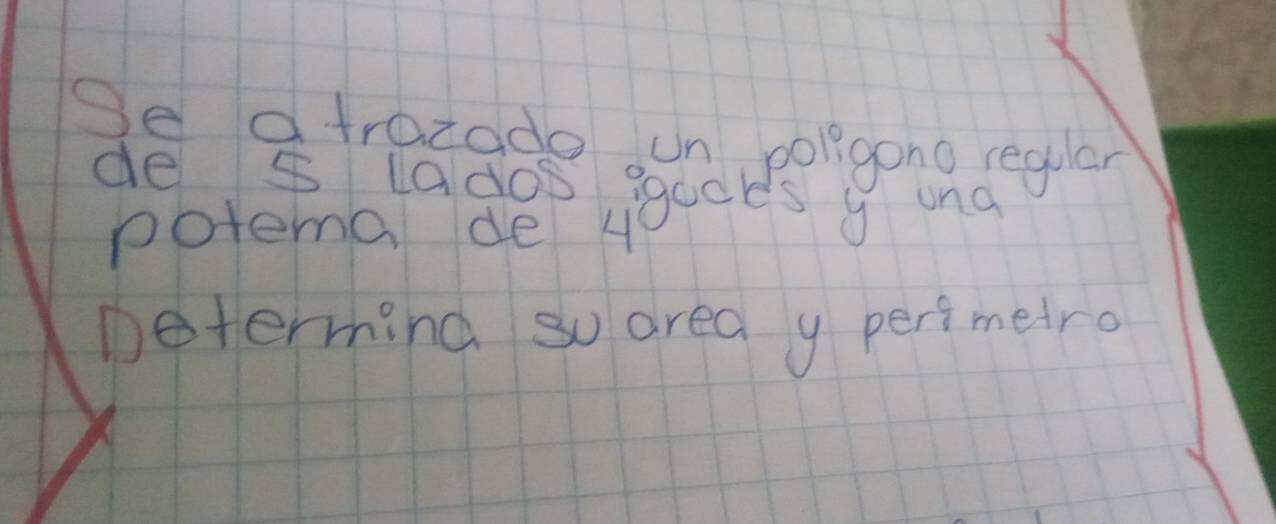 Se a trazado un poligono regular
de 5 lados iguales y una
potema de 4
Determina su area y perimetro